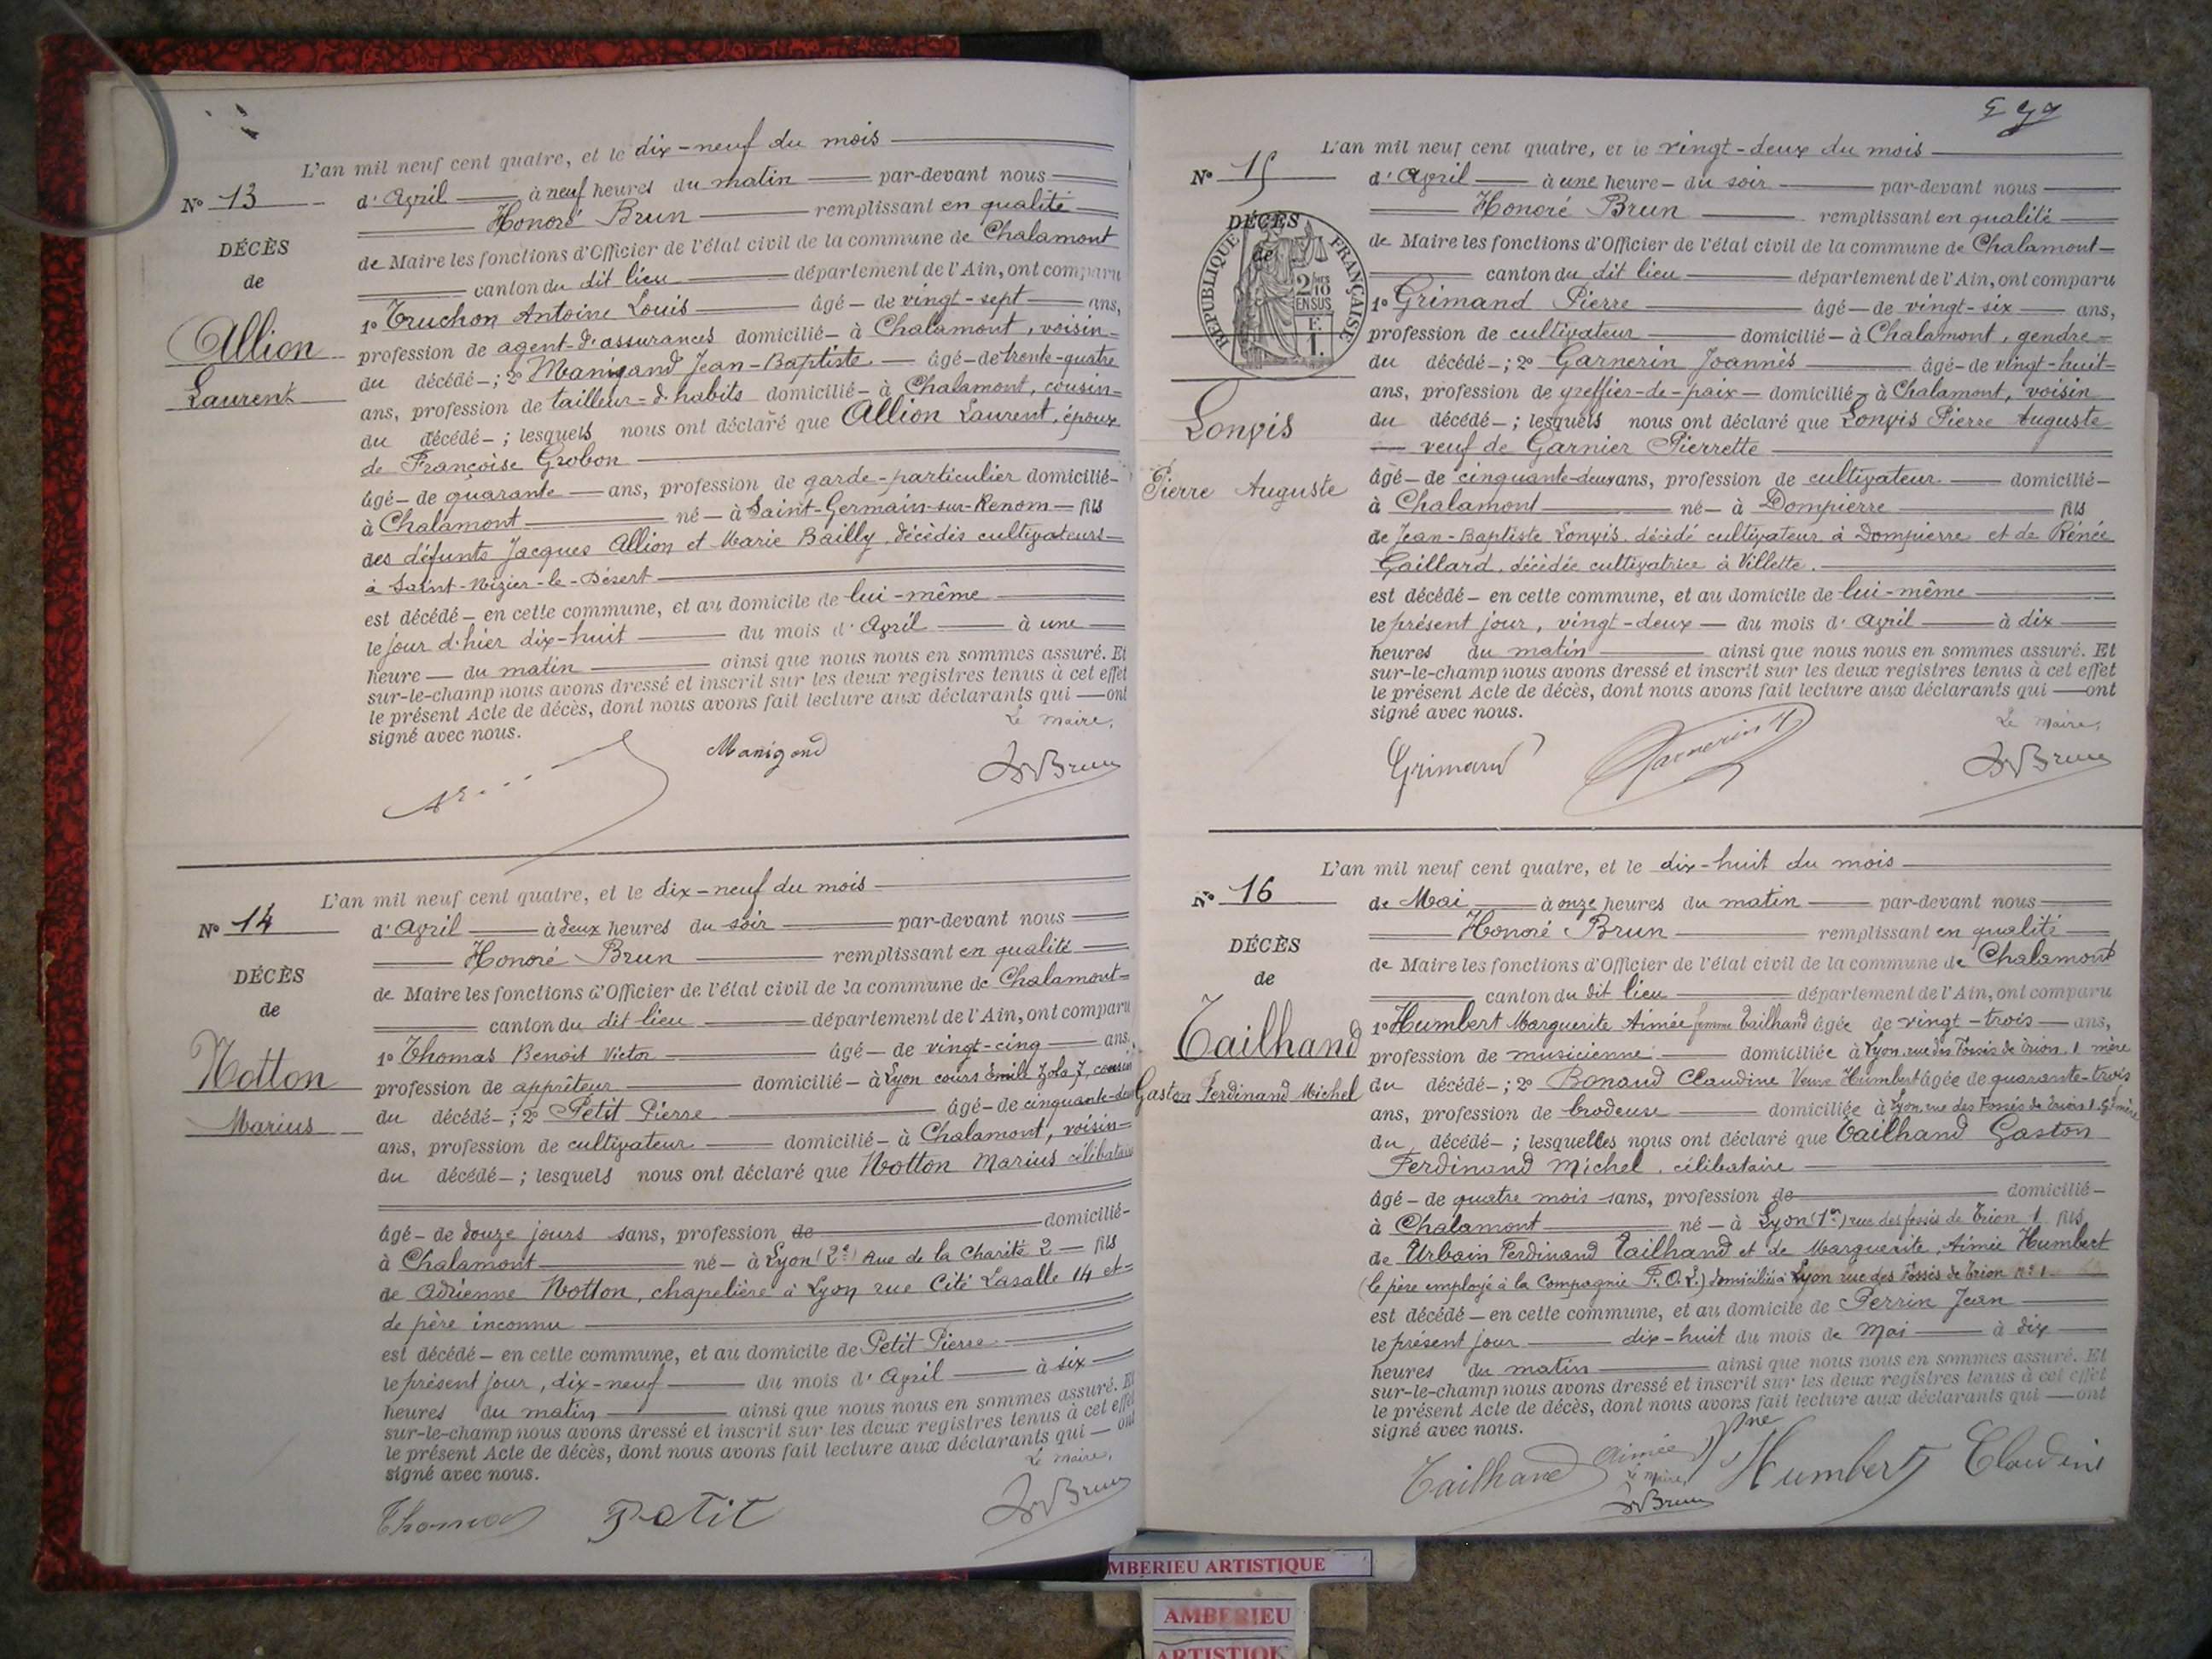 L'an mil neuf cent quatre, et le dix-neuf du mois
N° 13
d'Avril à neuf heures du matin par-devant nous
Honoré Brun remplissant en qualité
DÉCÈS
de Maire les fonctions d'Officier de l'état civil de la commune de Chalamont
de
canton du dit lieu département de l'Ain, ont comparu
Allion
1° Truchon Antoine Louis âgé de vingt-sept ans,
profession de agent-d'assurances domicilié à Chalamont, voisin
Laurent
du décédé ; 2° Manigand Jean-Baptiste âgé de trente-quatre
ans, profession de tailleur-d'habits domicilié à Chalamont, cousin
du décédé ; lesquels nous ont déclaré que Allion Laurent, époux
de Françoise Grobon
âgé de quarante ans, profession de garde-particulier domicilié
à Chalamont né à Saint-Germain-sur-Renom fils
des défunts Jacques Allion et Marie Bailly, décédés cultivateurs
à Saint-Nizier-le-Désert
est décédé en cette commune, et au domicile de lui-même
le jour d'hier dix-huit du mois d'Avril à une
heure du matin ainsi que nous nous en sommes assuré. Et
sur-le-champ nous avons dressé et inscrit sur les deux registres tenus à cet effet
le présent Acte de décès, dont nous avons fait lecture aux déclarants qui ont
signé avec nous.
Le maire,
Manigand
Brun
L'an mil neuf cent quatre, et le dix-neuf du mois
N° 14
d'Avril à deux heures du soir par-devant nous
Honoré Brun remplissant en qualité
DÉCÈS
de Maire les fonctions d'Officier de l'état civil de la commune de Chalamont
de
canton du dit lieu département de l'Ain, ont comparu
Notton
1° Thomas Benoit Victor âgé de vingt-cinq ans,
profession de apprêteur domicilié à Lyon cours Emile Zola 7, cousin
Marius
du décédé ; 2° Petit Pierre âgé de cinquante-deux
ans, profession de cultivateur domicilié à Chalamont, voisin
du décédé ; lesquels nous ont déclaré que Notton Marius célibataire
âgé de douze jours sans, profession de domicilié
à Chalamont né à Lyon (2e) Rue de la Charité 2 fils
de Adrienne Notton, chapelière à Lyon rue Cité Lasalle 14 et
de père inconnu
est décédé en cette commune, et au domicile de Petit Pierre
le présent jour, dix-neuf du mois d'Avril à six
heures du matin ainsi que nous nous en sommes assuré. Et
sur-le-champ nous avons dressé et inscrit sur les deux registres tenus à cet effet
le présent Acte de décès, dont nous avons fait lecture aux déclarants qui ont
signé avec nous.
Le maire,
Thomas Petit Brun
L'an mil neuf cent quatre, et le vingt-deux du mois
N° 15
d'Avril à une heure du soir par-devant nous
Honoré Brun remplissant en qualité
DÉCÈS
de Maire les fonctions d'Officier de l'état civil de la commune de Chalamont
de
RÉPUBLIQUE FRANÇAISE
canton du dit lieu département de l'Ain, ont comparu
1° Grimand Pierre âgé de vingt-six ans,
profession de cultivateur domicilié à Chalamont, gendre
du décédé ; 2° Garnerin Joannès âgé de vingt-huit
ans, profession de greffier-de-paix domicilié à Chalamont, voisin
Lonvis
du décédé ; lesquels nous ont déclaré que Lonvis Pierre Auguste
veuf de Garnier Pierrette
Pierre Auguste
âgé de cinquante-deux ans, profession de cultivateur domicilié
à Chalamont né à Dompierre fils
de Jean-Baptiste Lonvis, décédé cultivateur à Dompierre et de Rénée
Gaillard, décédée cultivatrice à Villette.
est décédé en cette commune, et au domicile de lui-même
le présent jour, vingt-deux du mois d'Avril à dix
heures du matin ainsi que nous nous en sommes assuré. Et
sur-le-champ nous avons dressé et inscrit sur les deux registres tenus à cet effet
le présent Acte de décès, dont nous avons fait lecture aux déclarants qui ont
signé avec nous.
Le maire,
Grimand Garnerin Brun
L'an mil neuf cent quatre, et le dix-huit du mois
N° 16
de Mai à onze heures du matin par-devant nous
Honoré Brun remplissant en qualité
DÉCÈS
de Maire les fonctions d'Officier de l'état civil de la commune de Chalamont
de
canton du dit lieu département de l'Ain, ont comparu
Tailhand
1° Humbert Marguerite Aimée femme Tailhand âgée de vingt-trois ans,
profession de musicienne domiciliée à Lyon, rue des Fossés de Trion, 1 mère
Gaston Ferdinand Michel
du décédé ; 2° Bonand Claudine Veuve Humbert âgée de quarante-trois
ans, profession de brodeuse domiciliée à Lyon, rue des Fossés de Trion 1. Gd mère
du décédé ; lesquelles nous ont déclaré que Tailhand Gaston
Ferdinand Michel, célibataire
âgé de quatre mois sans, profession de domicilié
à Chalamont né à Lyon rue des fossés de Trion 1 fils
de Urbain Ferdinand Tailhand et de Marguerite Aimée Humbert
(le père employé à la Compagnie F. O. L.) domiciliés à Lyon rue des Fossés de Trion N° 1
est décédé en cette commune, et au domicile de Perrin Jean
le présent jour dix-huit du mois de Mai à dix
heures du matin ainsi que nous nous en sommes assuré. Et
sur-le-champ nous avons dressé et inscrit sur les deux registres tenus à cet effet
le présent Acte de décès, dont nous avons fait lecture aux déclarants qui ont
signé avec nous.
Tailhand Aimée Vne Humbert Claudine
Le maire,
Brun
AMBERIEU ARTISTIQUE
AMBERIEU